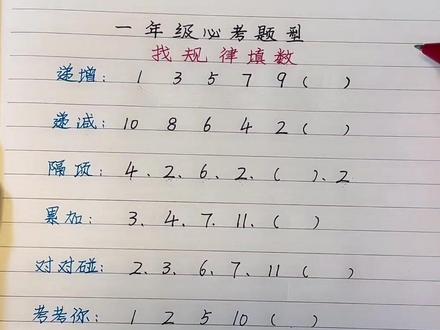 一年级必考题型
找规律填数
递增： 1 3 5 7 9 （ ）
递减： 10 8 6 4 2 （ ）
隔项： 4、2、6、2、（ ）、2
累加： 3、4、7、11、（ ）
对对碰： 2、3、6、7、11 （ ）
考考你： 1 2 5 10 （ ）